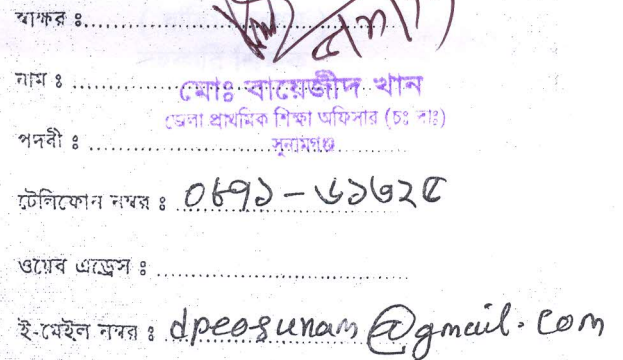 স্বাক্ষর ঃ
নাম ঃ মোঃ বায়েজীদ খান
জেলা প্রাথমিক শিক্ষা অফিসার (চঃ দাঃ)
পদবী ঃ সুনামগঞ্জ
টেলিফোন নম্বর ঃ ০৮৭১-৬১৬২৫
ওয়েব এড্রেস ঃ
ই-মেইল নম্বর ঃ dpeosunam@gmail.com